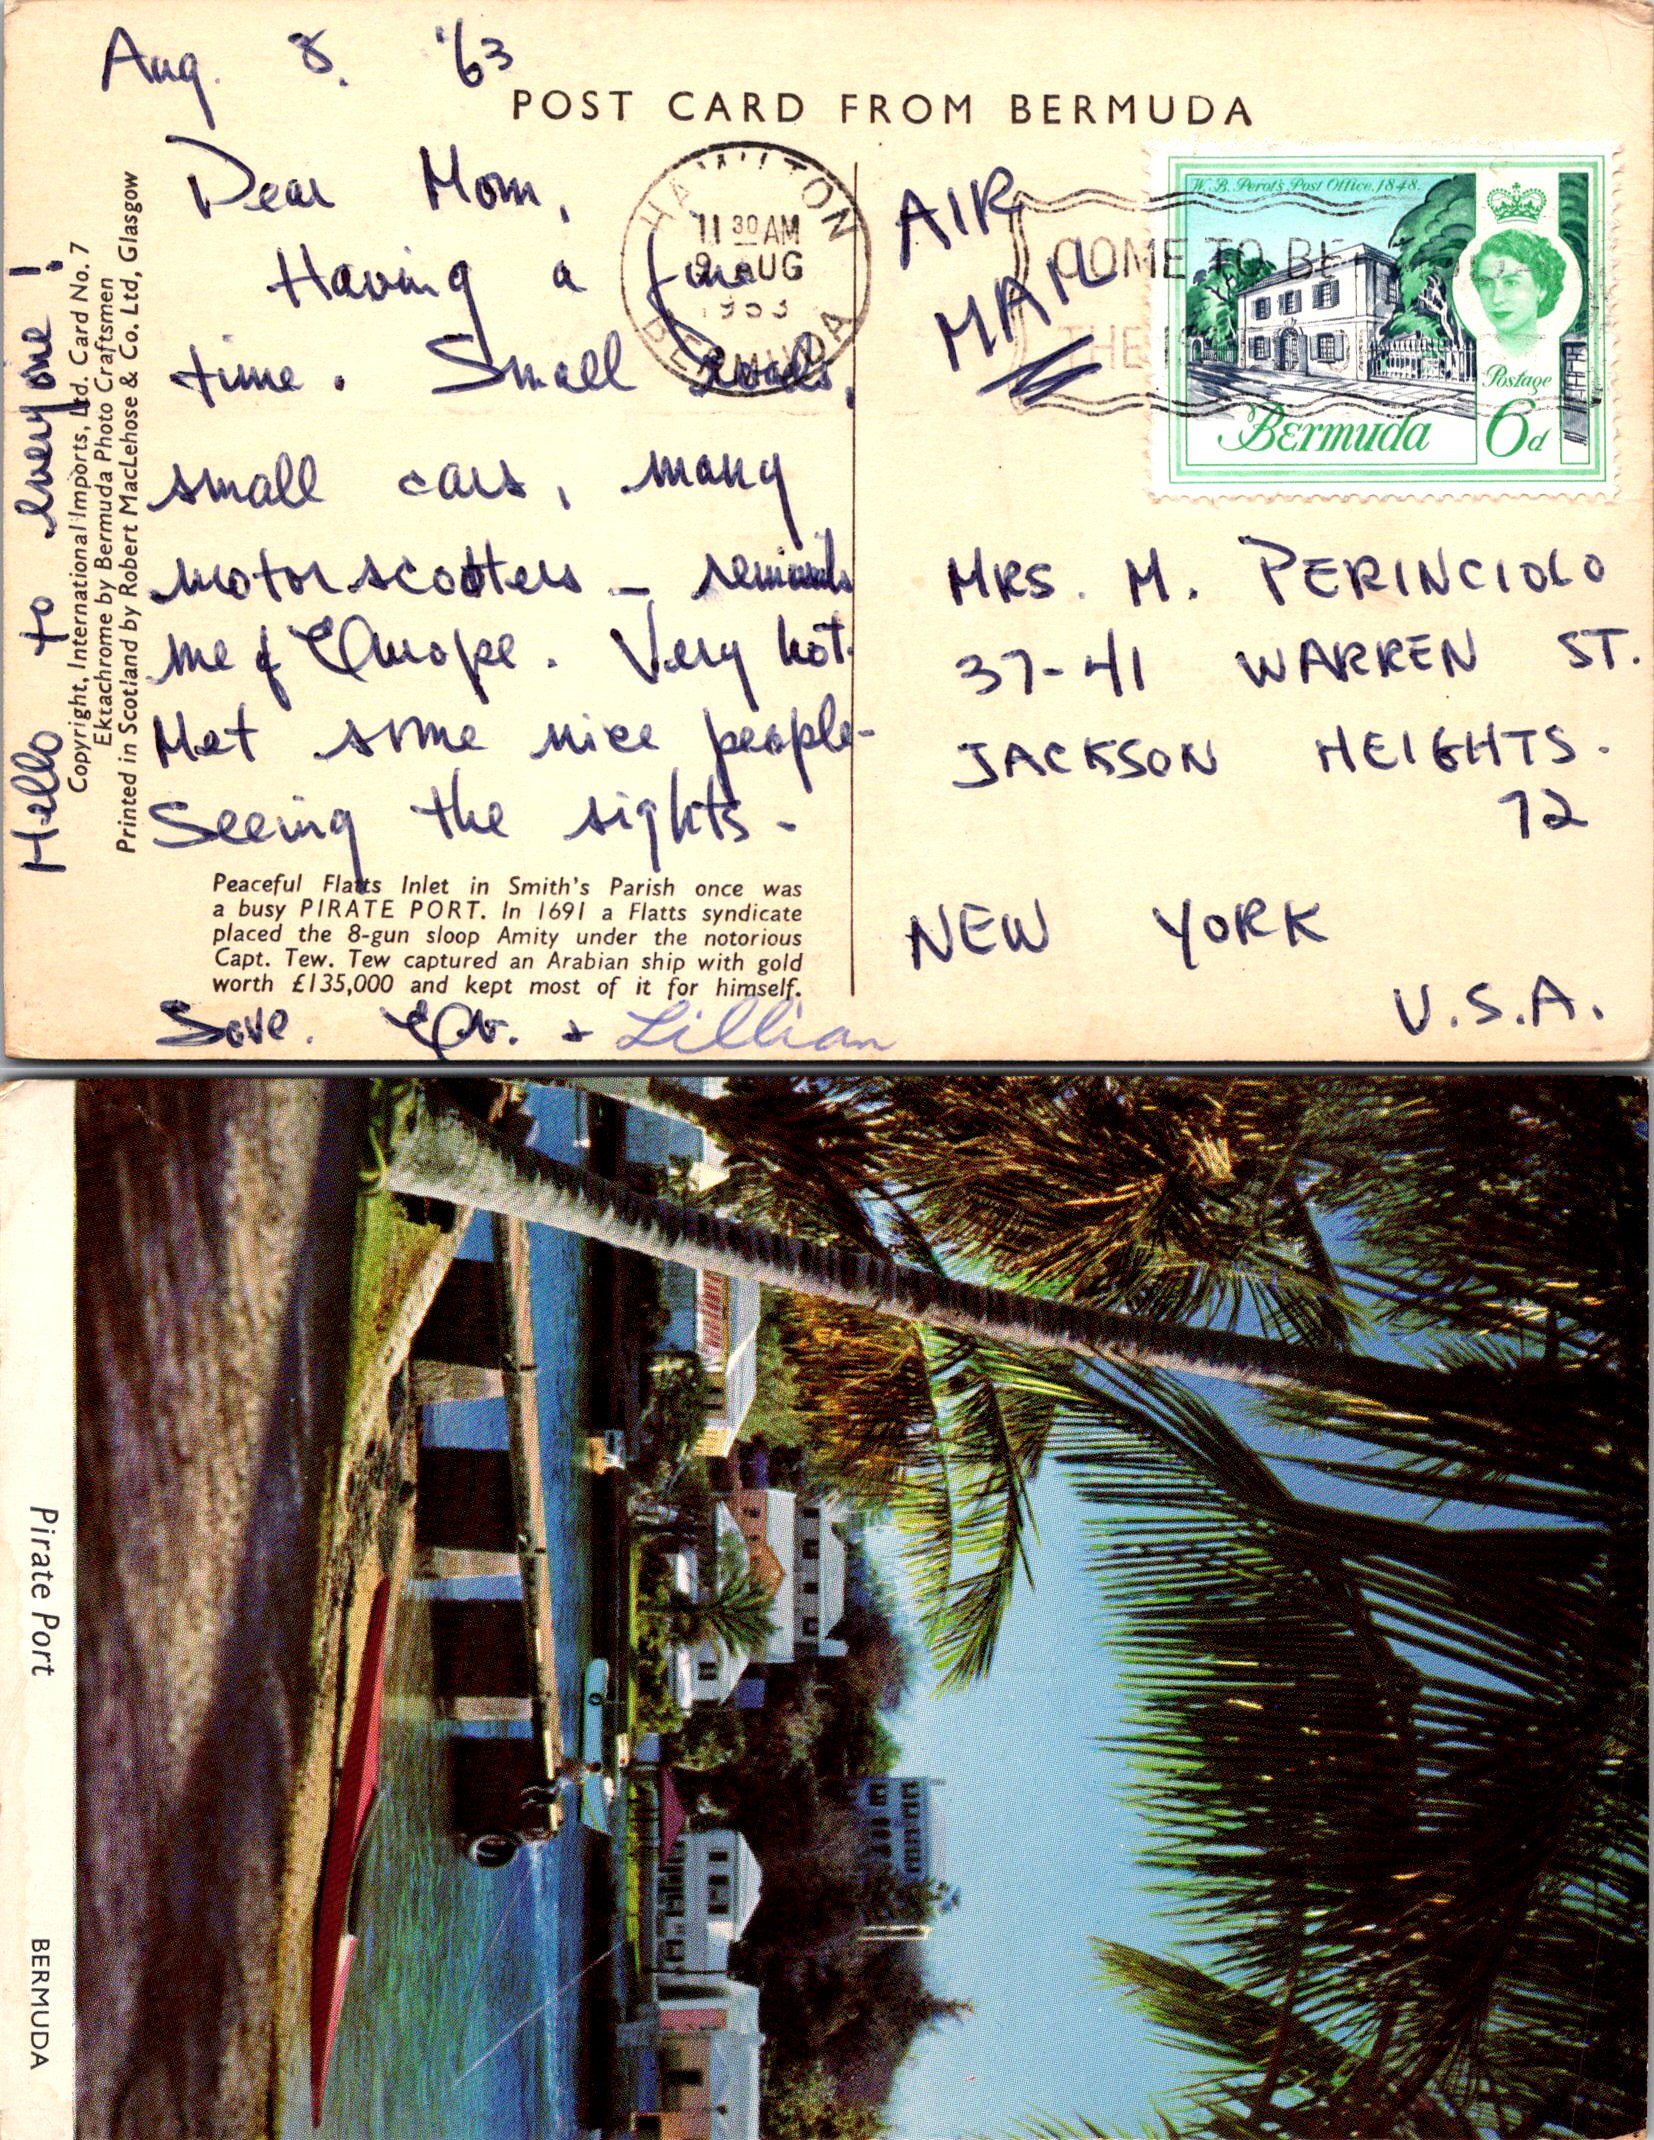 Aug. 8. '63
POST CARD FROM BERMUDA
Dear Mom,
Having a fine
time. Small Roads,
small cars, many
motorscooters – reminds
me of Europe. Very hot.
Met some nice people-
Seeing the sights-
Peaceful Flatts Inlet in Smith's Parish once was
a busy PIRATE PORT. In 1691 a Flatts syndicate
placed the 8-gun sloop Amity under the notorious
Capt. Tew. Tew captured an Arabian ship with gold
worth £135,000 and kept most of it for himself.
Love. & Lillian
Hello to everyone!
Copyright, International Imports, Ltd. Card No. 7
Ektachrome by Bermuda Photo Craftsmen
Printed in Scotland by Robert MacLehose & Co. Ltd, Glasgow
HAMILTON
11 30 AM
9 AUG
1963
BERMUDA
COME TO BE
THE
AIR
MAIL
W. B. Perot's Post Office, 1848.
Postage
Bermuda 6d
MRS. M. PERINCIOLO
37-41 WARREN ST.
JACKSON HEIGHTS.
72
NEW YORK
U.S.A.
Pirate Port
BERMUDA